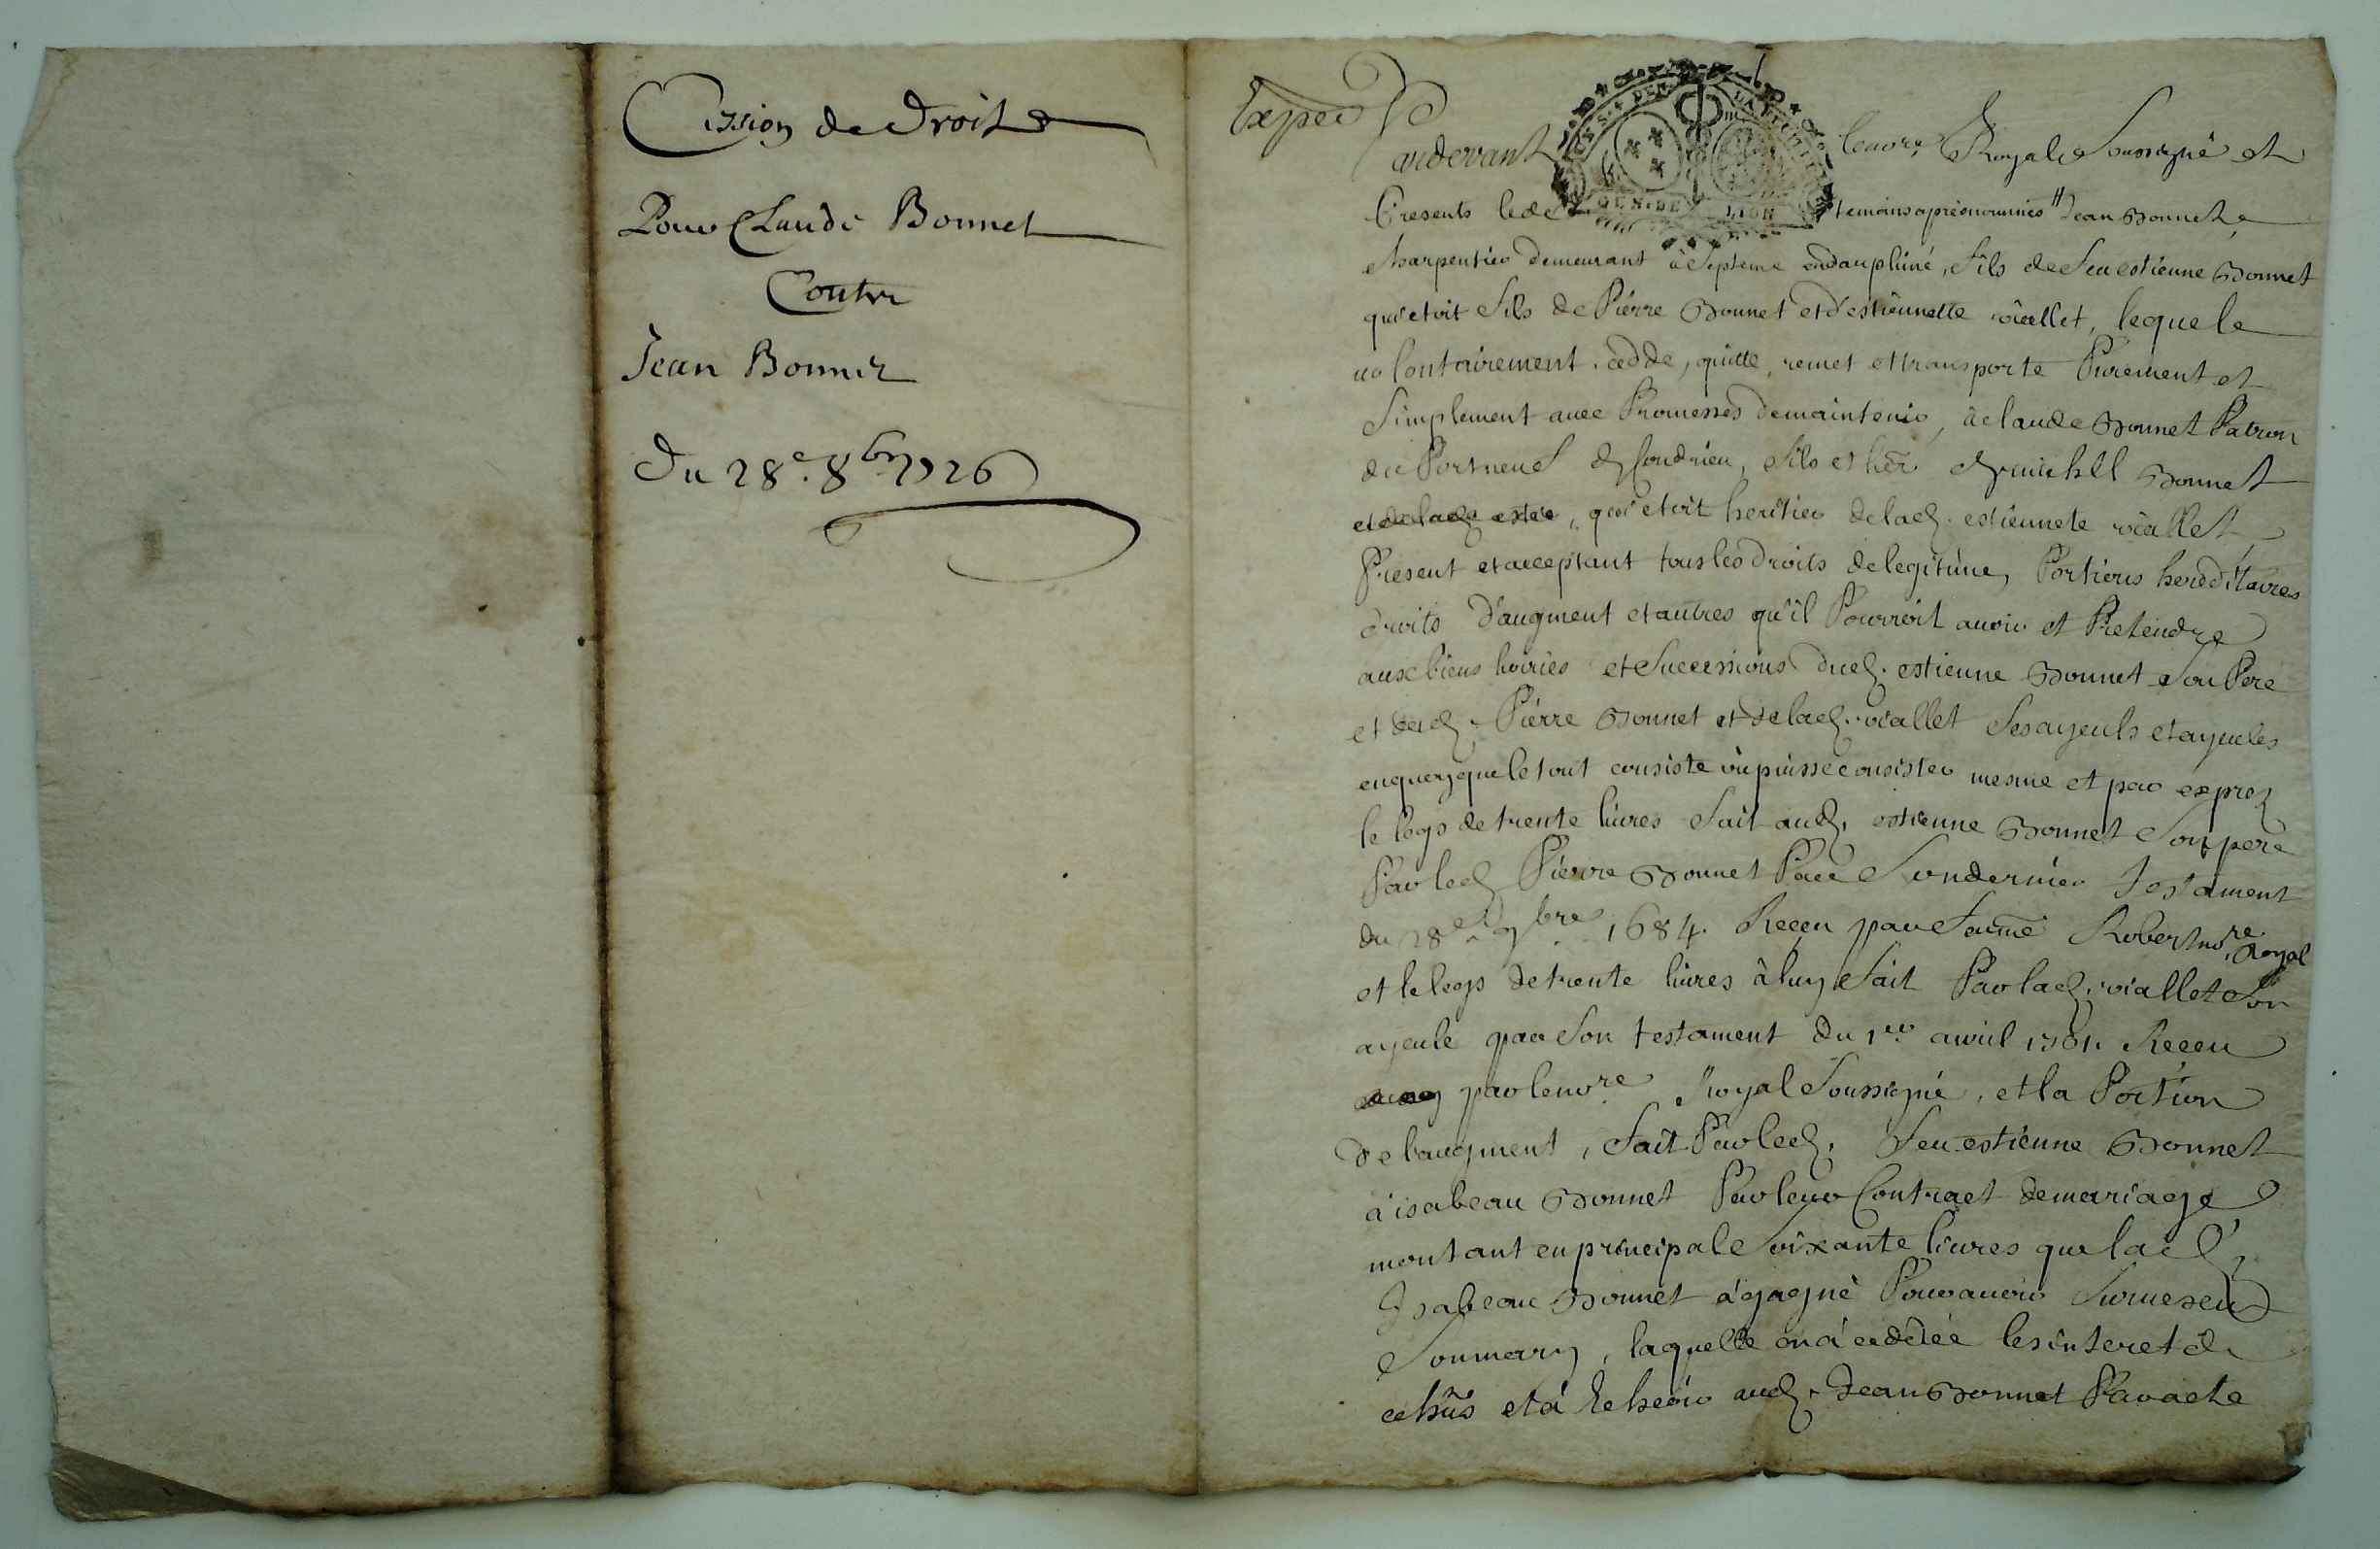 Cession de Droits
Pour Claude Bonnet
Contre
Jean Bonnet
Du 28e. 8bre 1726
Exped
GEN. DE LION
pardevant le no.re Royal Soussigné et
Presents les temoins aprésnommés Jean Bonnet
charpentier demeurant à Septeme en dauphiné, fils de feu estienne Bonnet
qui etoit fils de Pierre Bonnet et d'estiennette viallet, lequel
volontairement cedde, quitte, remet et transporte Purement et
Simplement avec Promesses de maintenir, à claude Bonnet Patron
du Port neuf de Condrieu, fils et her michel Bonnet
qui etoit heritier de lad. estiennete viallet
Present et acceptant tous les droits de legitime, Portions heredditaires
droits d'augment et autres qu'il Pourroit avoir et Pretendre
aux biens hoiries et Successions dud. estienne Bonnet Son Pere
et dud. Pierre Bonnet et de lad. viallet Ses ayeuls et ayeules
en quoy que le tout consiste ou puisse consister mesme et par exprez
le legs de trente livres fait aud. estienne Bonnet Son pere
Par led. Pierre Bonnet Par Son dernier testament
du 28e 9bre 1684. Receu par feu me Robert nore. Royal
et le legs de trente livres à luy fait Par lad. viallet Son
ayeule par Son testament du 1er avril 1701. Receu
par le nore. Royal Soussigné, et la Portion
de l'augment, fait Par led. feu estienne Bonnet
à isabeau Bonnet Par leur Contract de mariage
montant en principal Soixante livres que lad.
Isabeau Bonnet à gagné Pour avoir Survescu
Son mary, laquelle en à ceddée les interet
echus et à Echeoir aud. Jean Bonnet Par acte